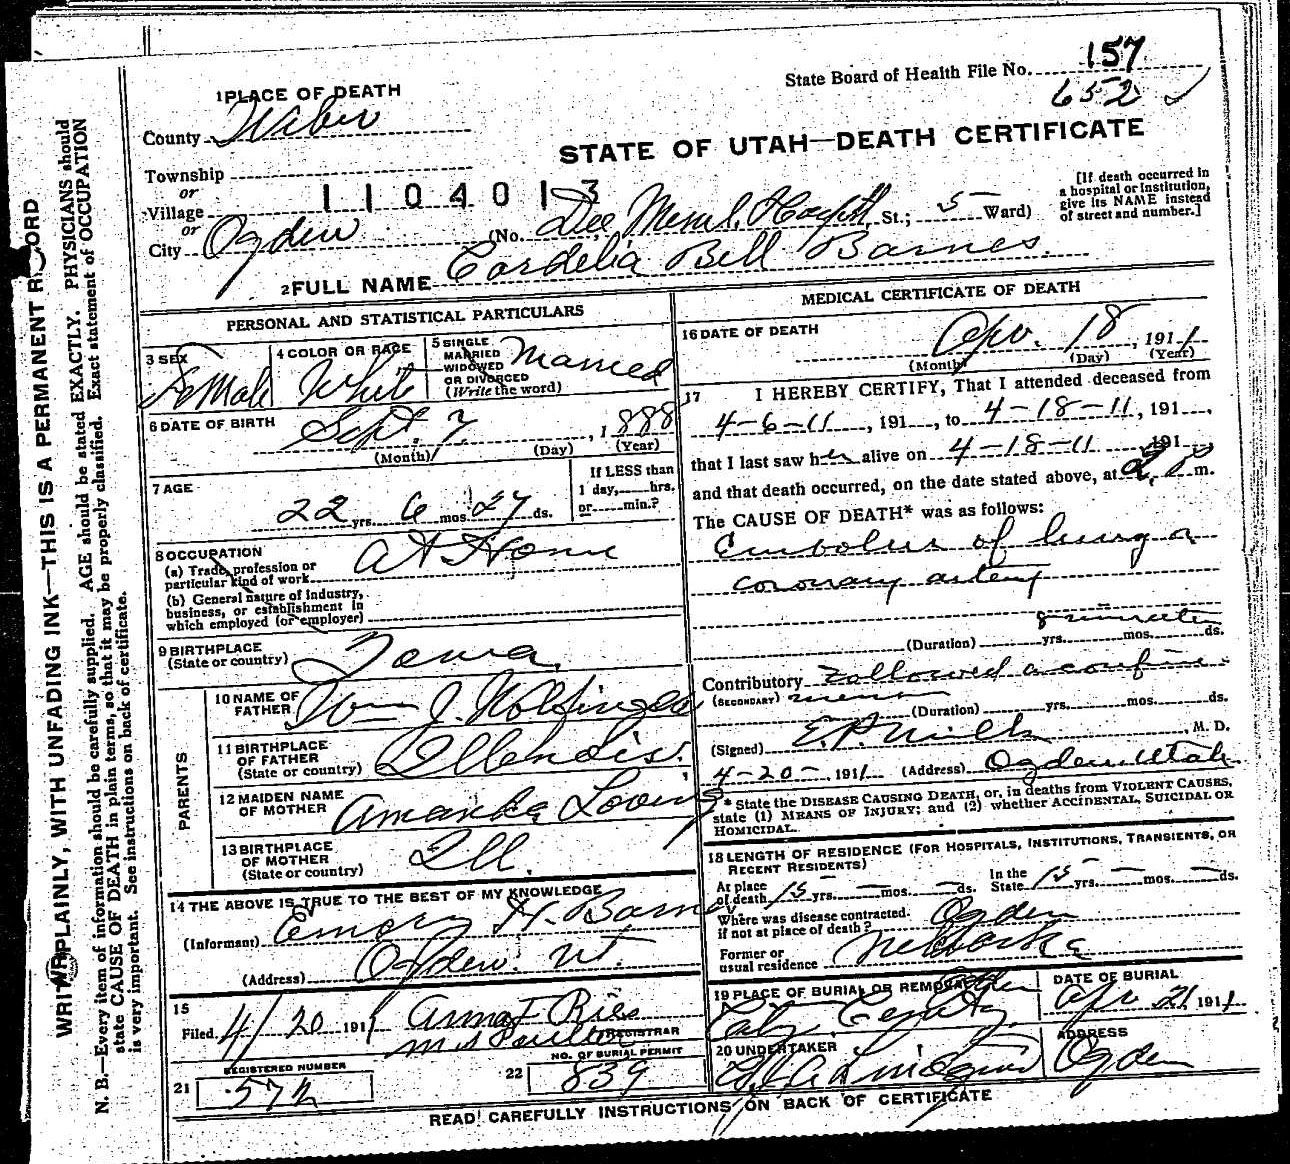 State Board of Health File No. 157
652
1 PLACE OF DEATH
County Weber
STATE OF UTAH—DEATH CERTIFICATE
Township
or
Village
1104013
or
City Ogden (No. Dee Meml. Hospt. St.; 5 Ward)
[If death occurred in
a hospital or institution,
give its NAME instead
of street and number.]
2 FULL NAME Cordelia Bell Barnes.
PERSONAL AND STATISTICAL PARTICULARS
3 SEX
Female
4 COLOR OR RACE
White
5 SINGLE
MARRIED
WIDOWED
OR DIVORCED
(Write the word)
Married
6 DATE OF BIRTH
Sept. 7, 1888
(Month) (Day) (Year)
7 AGE
22 yrs. 6 mos. 27 ds.
If LESS than
1 day, hrs.
or min.?
8 OCCUPATION
(a) Trade, profession or
particular kind of work
At Home
(b) General nature of industry,
business, or establishment in
which employed (or employer)
9 BIRTHPLACE
(State or country)
Iowa.
PARENTS
10 NAME OF
FATHER
Wm J.
11 BIRTHPLACE
OF FATHER
(State or country)
Illendis.
12 MAIDEN NAME
OF MOTHER
Amanda Loving
13 BIRTHPLACE
OF MOTHER
(State or country)
Ill.
14 THE ABOVE IS TRUE TO THE BEST OF MY KNOWLEDGE
(Informant) Emery H. Barnes.
(Address) Ogden. Ut.
15
Filed 4/20 1911 Anna F Ries
REGISTRAR
REGISTERED NUMBER
21 572
NO. OF BURIAL PERMIT
22 839
MEDICAL CERTIFICATE OF DEATH
16 DATE OF DEATH
Apr. 18, 1911
(Month) (Day) (Year)
17 I HEREBY CERTIFY, That I attended deceased from
4-6-11, 191, to 4-18-11, 191,
that I last saw her alive on 4-18-11 191,
and that death occurred, on the date stated above, at m.
The CAUSE OF DEATH* was as follows:
Embolus of lung or
coronary artery
8 minutes
(Duration) yrs. mos. ds.
Contributory Followed a confine-
(SECONDARY) ment
(Duration) yrs. mos. ds.
(Signed) E.P. Mills, M. D.
4-20-, 1911 (Address) Ogden Utah
* State the DISEASE CAUSING DEATH, or, in deaths from VIOLENT CAUSES,
state (1) MEANS OF INJURY; and (2) whether ACCIDENTAL, SUICIDAL OR
HOMICIDAL.
18 LENGTH OF RESIDENCE (FOR HOSPITALS, INSTITUTIONS, TRANSIENTS, OR
RECENT RESIDENTS)
At place
of death 15 yrs. — mos. — ds.
In the
State 15 yrs. — mos. — ds.
Where was disease contracted.
if not at place of death?
Ogden
Former or
usual residence
Nebraska
19 PLACE OF BURIAL OR REMOVAL
Ogden
City Cemetery.
DATE OF BURIAL
Apr 21 1911
20 UNDERTAKER
ADDRESS
Ogden
READ CAREFULLY INSTRUCTIONS ON BACK OF CERTIFICATE
WRITE PLAINLY, WITH UNFADING INK—THIS IS A PERMANENT RECORD
N. B.—Every item of information should be carefully supplied. AGE should be stated EXACTLY. PHYSICIANS should
state CAUSE OF DEATH in plain terms, so that it may be properly classified. Exact statement of OCCUPATION
is very important. See instructions on back of certificate.